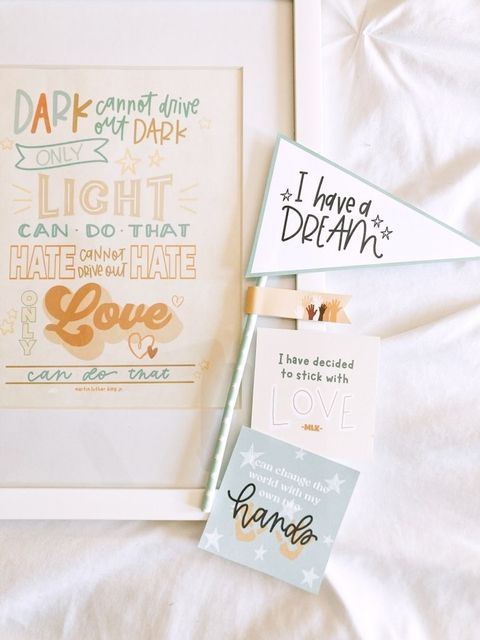 DARK cannot drive
out DARK
ONLY
LIGHT
CAN · DO · THAT
HATE cannot
DRIVE out HATE
ONLY
Love
can do that
martin luther king jr.
I have a
DREAM
I have decided
to stick with
LOVE
-MLK-
I can change the
world with my
own two
hands